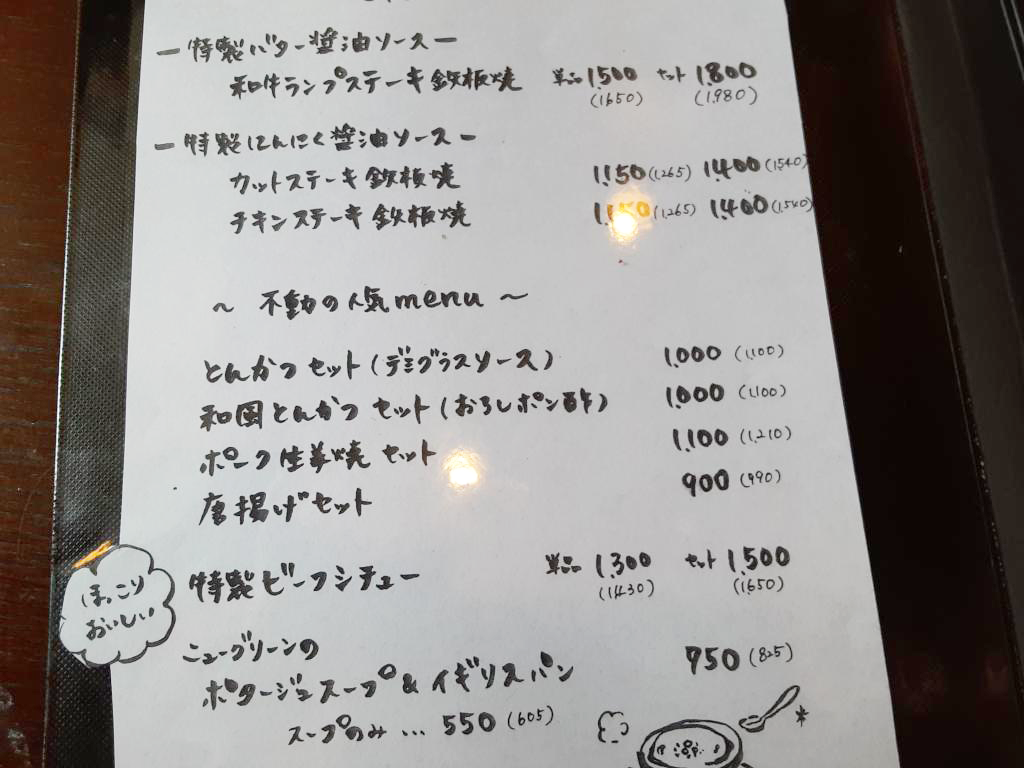 ー特製バター醤油ソースー
和牛ランプステーキ鉄板焼 単品1,500 セット1,800
(1650) (1,980)
ー特製にんにく醤油ソースー
カットステーキ鉄板焼 1,150(1,265) 1,400(1,540)
チキンステーキ鉄板焼 1,150(1,265) 1,400(1,540)
〜 不動の人気menu 〜
とんかつセット(デミグラスソース) 1,000 (1,100)
和風とんかつ セット(おろしポン酢) 1,000 (1,100)
ポーク生姜焼 セット 1,100 (1,210)
唐揚げセット 900 (990)
特製ビーフシチュー 単品 1,300 セット 1,500
(1430) (1650)
ほっこり
おいしい
ニューグリーンの
ポタージュスープ&イギリスパン 750 (825)
スープのみ... 550 (605)